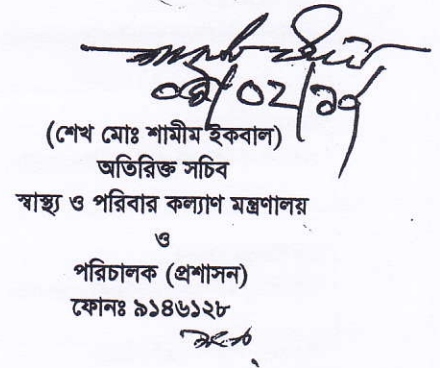 (শেখ মোঃ শামীম ইকবাল)
অতিরিক্ত সচিব
স্বাস্থ্য ও পরিবার কল্যাণ মন্ত্রণালয়
ও
পরিচালক (প্রশাসন)
ফোনঃ ৯১৪৬১২৮